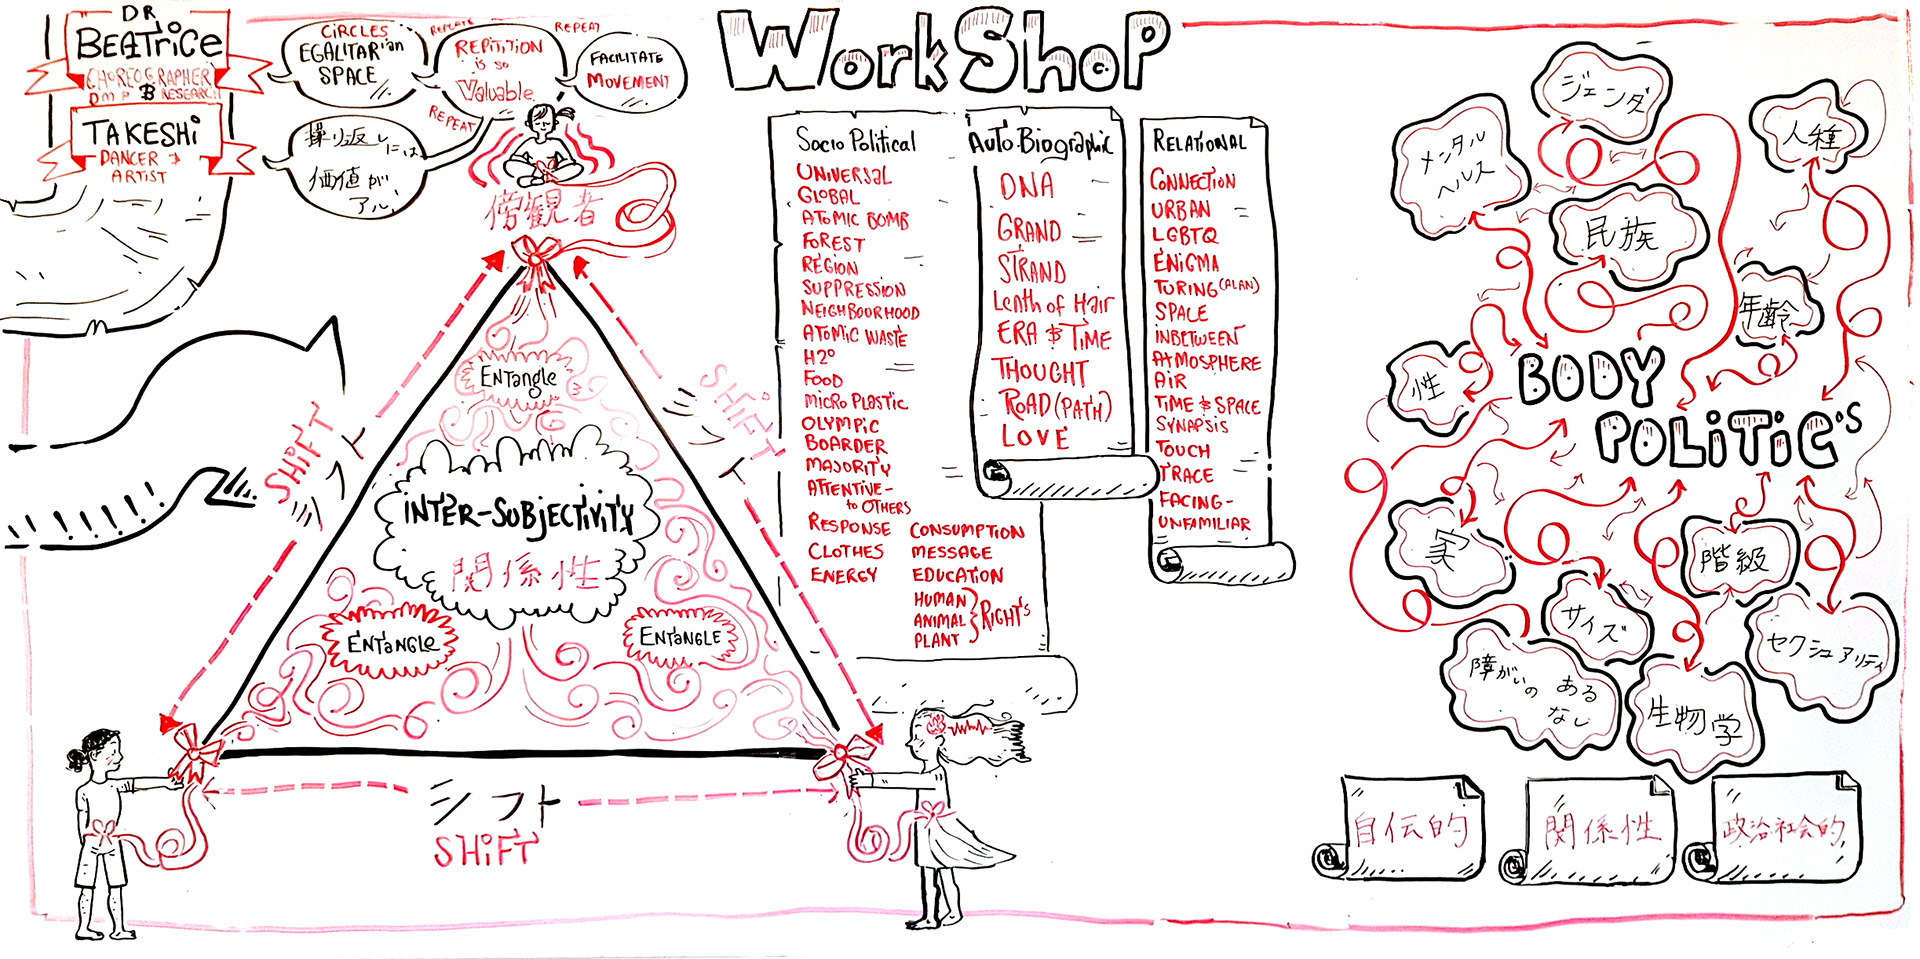 DR
BEATRICE
CHOREOGRAPHER
DMP & RESEARCH
TAKESHI
DANCER &
ARTIST
CIRCLES
EGALITARIAN
SPACE
REPEATE
REPITITION
IS SO
Valuable
REPEAT
REPEAT
FACILITATE
MOVEMENT
繰り返しには
価値が
アル,
傍観者
SHIFT
シフト
SHIFT
シフト
ENTangle
INTER-SUBJECTIVITY
関係性
ENTANGLE
ENTANGLE
シフト
SHIFT
WORKSHOP
Socio Political
UNIVERSAL
GLOBAL
ATOMIC BOMB
FOREST
REGION
SUPPRESSION
NEIGHBOURHOOD
ATOMIC WASTE
H2O
FOOD
MICRO PLASTIC
OLYMPIC
BOARDER
MAJORITY
ATTENTIVE-
to OTHERS
RESPONSE
CLOTHES
ENERGY
CONSUMPTION
MESSAGE
EDUCATION
HUMAN
ANIMAL
PLANT
RIGHT'S
Auto-Biographic
DNA
GRAND
STRAND
Lenth of Hair
ERA & TIME
THOUGHT
ROAD (PATH)
LOVE
RELATIONAL
CONNECTION
URBAN
LGBTQ
ENIGMA
TURING (ALAN)
SPACE
INBETWEEN
ATMOSPHERE
AIR
TIME & SPACE
SYNAPSIS
TOUCH
TRACE
FACING-
UNFAMILIAR
ジェンダ
メンタル
ヘルス
人種
民族
年齢
性
BODY
POLITIC'S
家
階級
サイズ
セクシュアリティ
障がいの ある
なし
生物学
自伝的
関係性
政治社会的